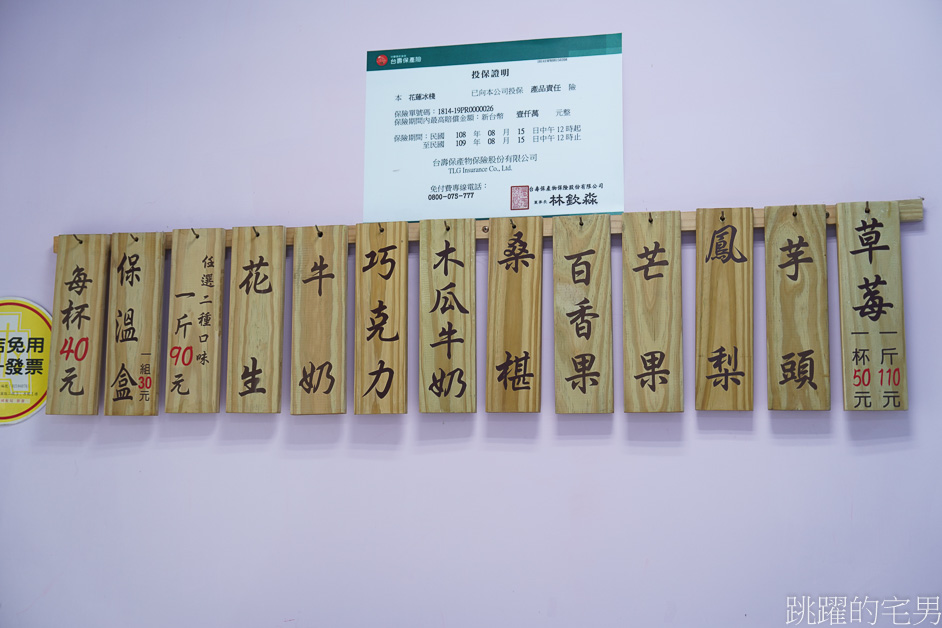 台壽保產險
投保證明
本 花蓮冰棧 已向本公司投保 產品責任 險
保險單號碼：1814-19PR0000026
保險期間內最高賠償金額：新台幣 壹仟萬 元整
保險期間：民國 108 年 08 月 15 日中午12時起
至民國 109 年 08 月 15 日中午12時止
台壽保產物保險股份有限公司
TLG Insurance Co., Ltd.
免付費專線電話：
0800-075-777
台壽保產物保險股份有限公司
董事長 林欽淼
每杯40元
保溫盒
一組30元
任選二種口味
一斤90元
花生
牛奶
巧克力
木瓜牛奶
桑椹
百香果
芒果
鳳梨
芋頭
草莓
一杯50元
一斤110元
店免用
發票
跳躍的宅男